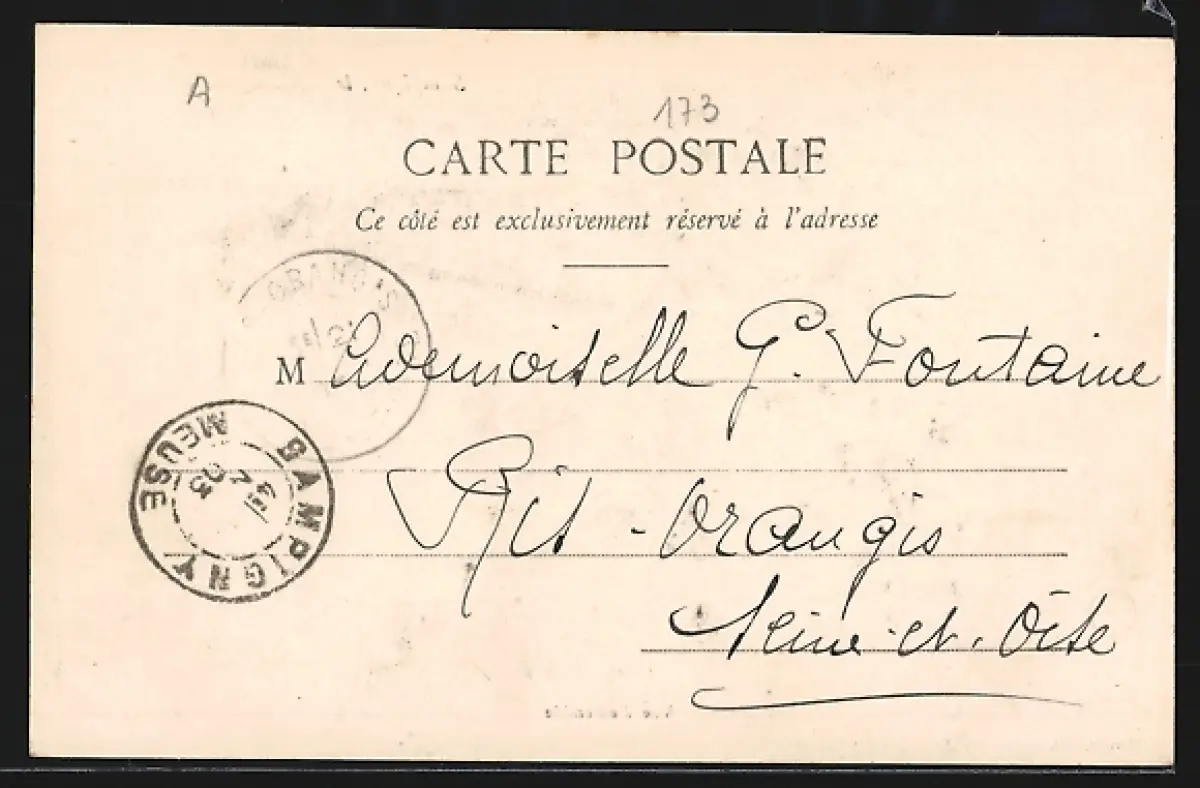 A
173
CARTE POSTALE
Ce côté est exclusivement réservé à l'adresse
ORANGIS
Mademoiselle G. Fontaine
SAMPIGNY
MEUSE
Ris-Orangis
Seine-et-Oise